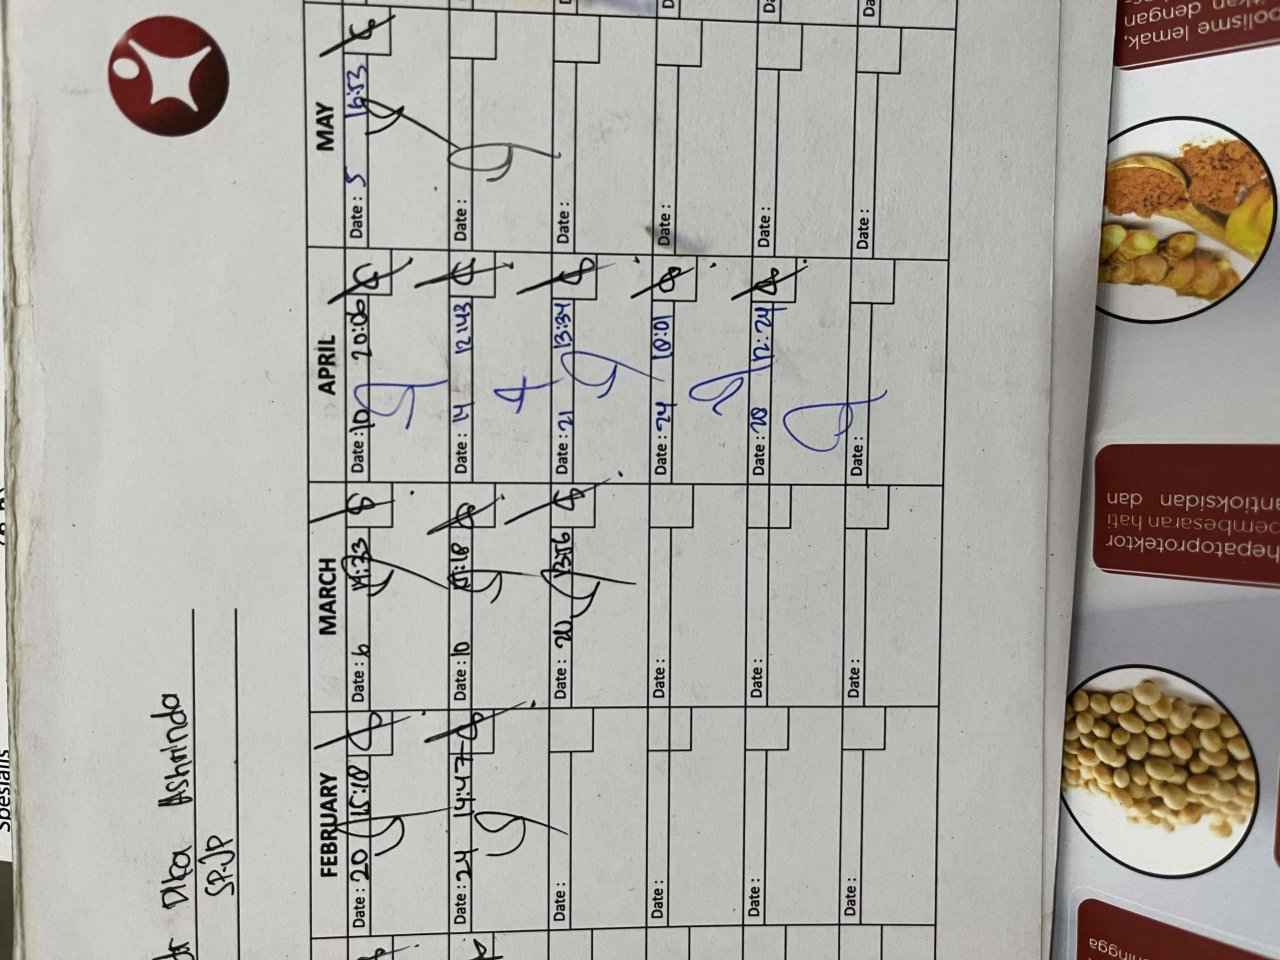 dr Dika Ashrinda
SP.JP
FEBRUARY
MARCH
APRIL
MAY
Date: 20 15:18
Date: 6
Date: 10 20:06
Date: 5 16:53
Date: 24 14:47
Date: 10
Date: 14 12:43
Date:
Date:
Date: 20
Date: 21 13:34
Date:
Date:
Date:
Date: 24
Date:
Date:
Date:
Date: 28 12:24
Date:
Date:
Date:
Date:
Date:
Spesialis
polisme lemak,
dengan
hepatoprotektor
pembesaran hati
antioksidan dan